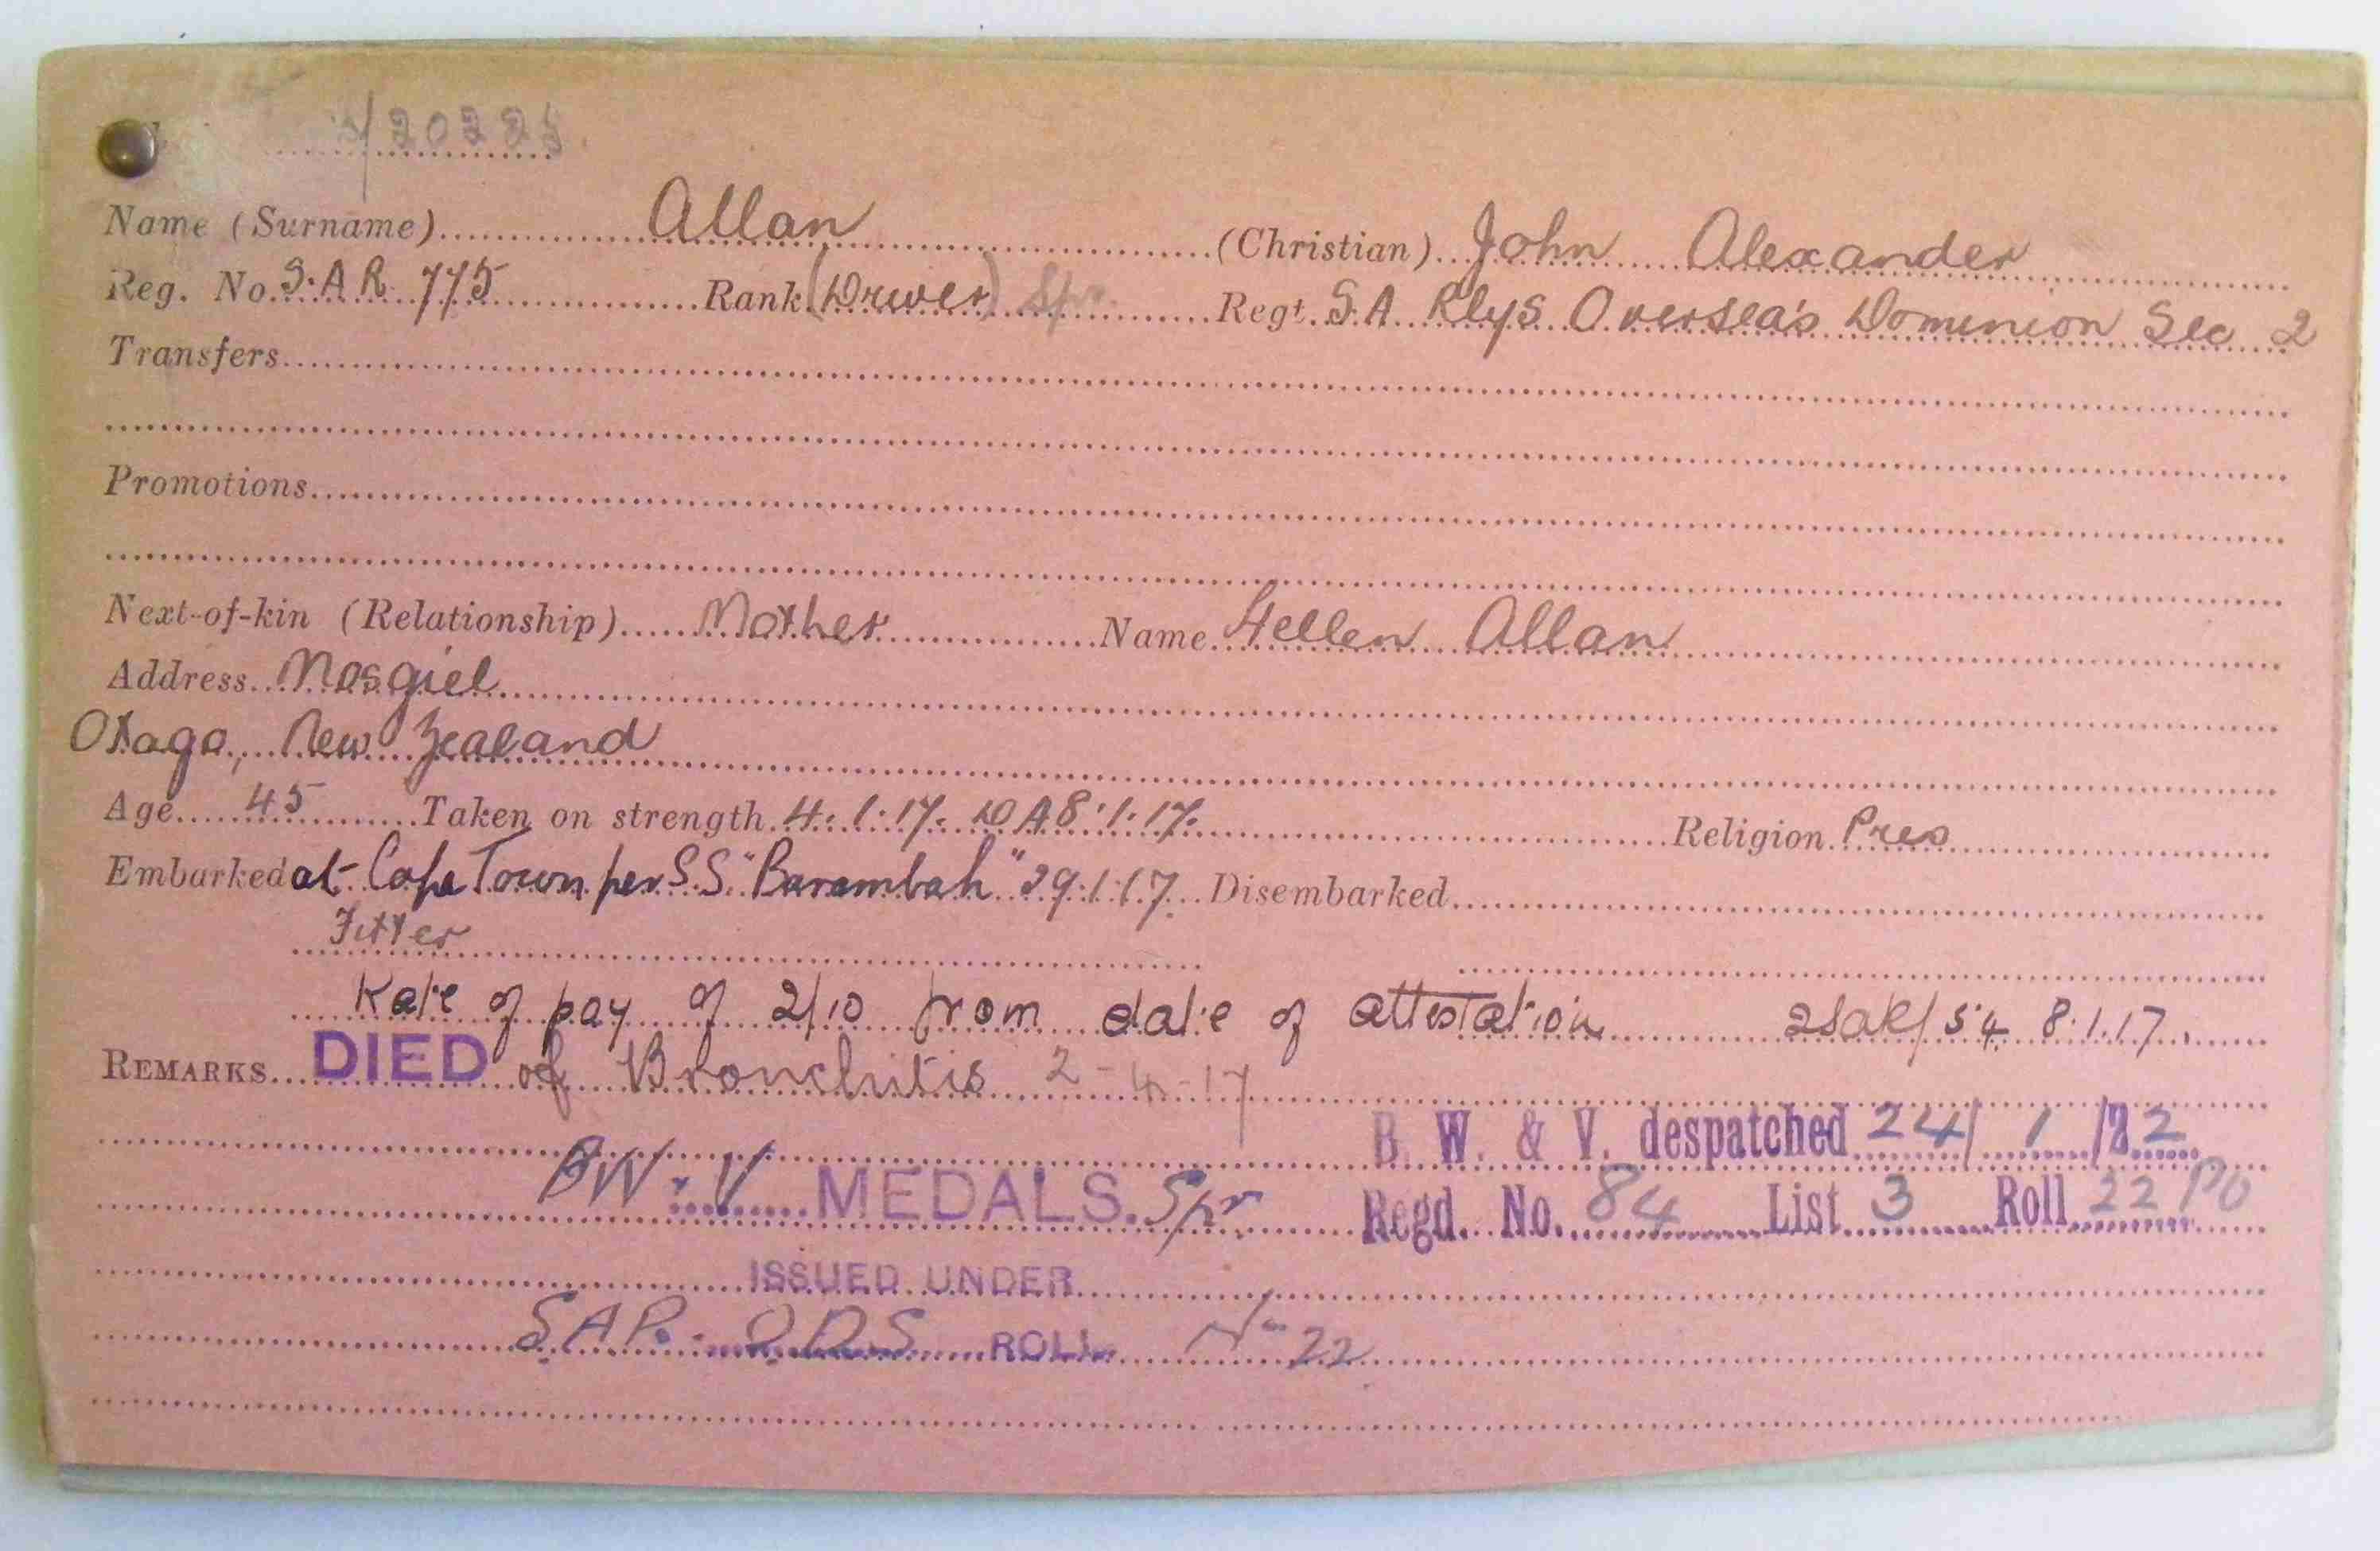 /20225
Name (Surname) Allan (Christian) John Alexander
Reg. No. S.A.R. 775 Rank (Driver) Spr. Regt. S.A. Rlys Oversea's Dominion Sec 2
Transfers
Promotions
Next-of-kin (Relationship) Mother Name Hellen Allan
Address Mosgiel
Otago, New Zealand
Age 45 Taken on strength 4.1.17. DA 8.1.17. Religion Pres
Embarked at Cape Town per S.S. "Barambah" 29.1.17. Disembarked
Fitter
Rate of pay of 2/10 from date of attestation 2SAR/54 8.1.17.
REMARKS DIED of Bronchitis 2-4-17
B. W. & V. despatched 24/1/22
BW. V. MEDALS. Spr Regd. No. 84 List 3 Roll 22 PO
ISSUED UNDER
S.A.R. O.D.S ROLL No 22